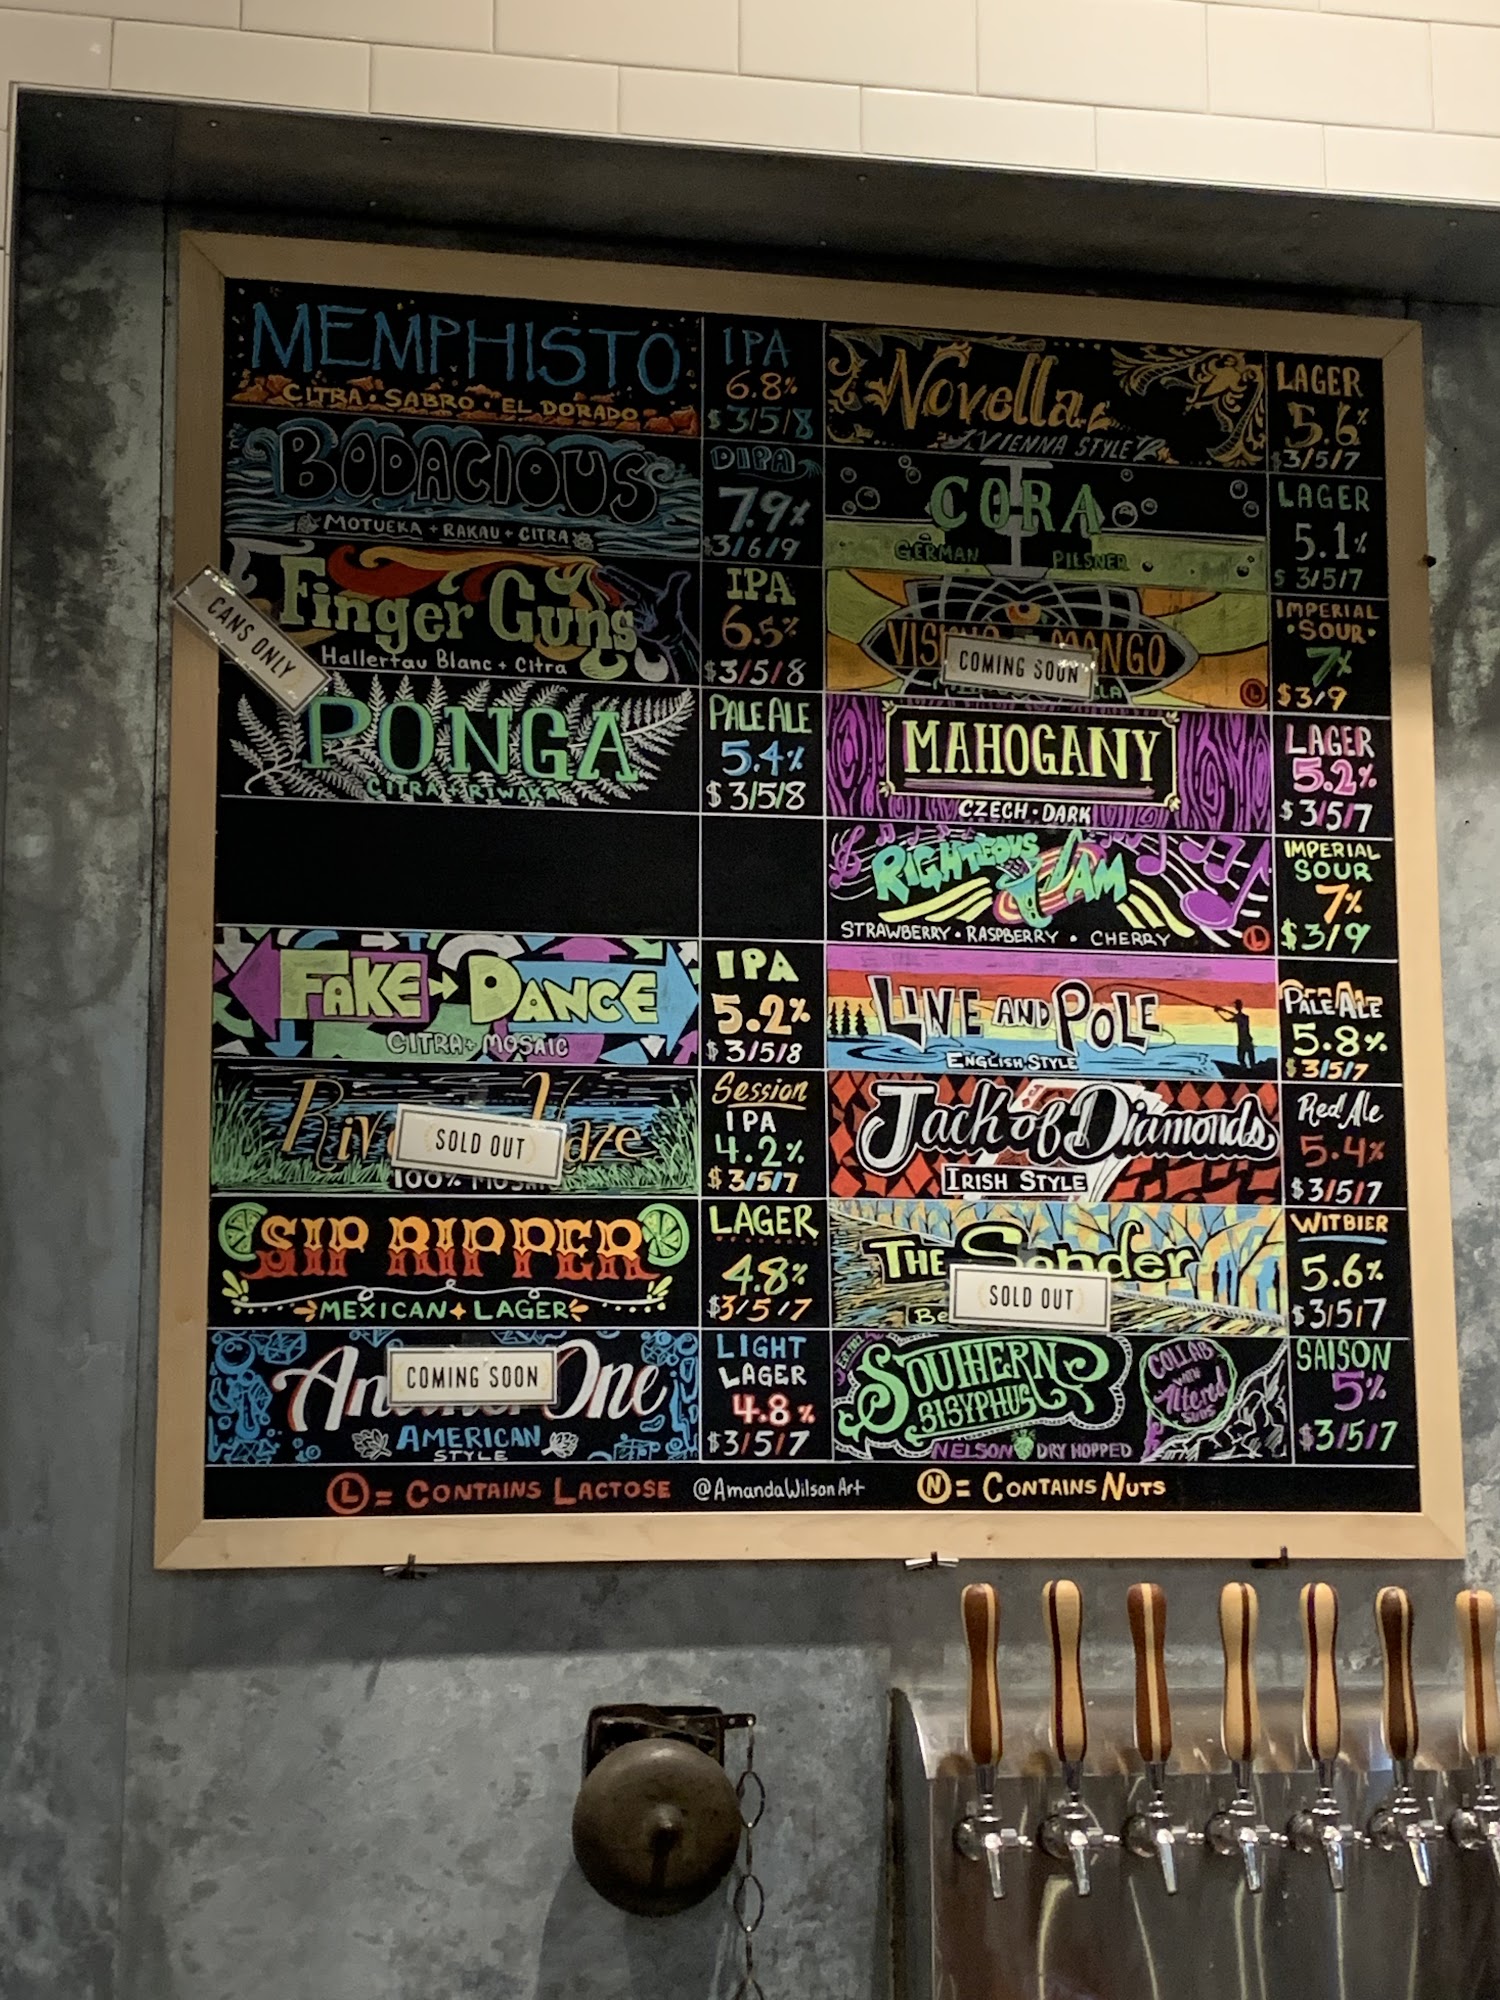 MEMPHISTO
CITRA • SABRO • EL DORADO
IPA
6.8%
$3/5/8
BODACIOUS
MOTUEKA + RAKAU + CITRA
DIPA
7.9%
$3/6/9
CANS ONLY
Finger Guns
Hallertau Blanc + Citra
IPA
6.5%
$3/5/8
PONGA
CITRA + RIWAKA
PALE ALE
5.4%
$3/5/8
FAKE DANCE
CITRA + MOSAIC
IPA
5.2%
$3/5/8
SOLD OUT
100%
Session
IPA
4.2%
$3/5/7
SIP RIPPER
MEXICAN LAGER
LAGER
4.8%
$3/5/7
One
COMING SOON
AMERICAN
STYLE
LIGHT
LAGER
4.8%
$3/5/7
Novella
VIENNA STYLE
LAGER
5.6%
$3/5/7
CORA
GERMAN PILSNER
LAGER
5.1%
$3/5/7
MANGO
COMING SOON
L
IMPERIAL
•SOUR•
7%
$3/9
MAHOGANY
CZECH • DARK
LAGER
5.2%
$3/5/7
RIGHTEOUS JAM
STRAWBERRY • RASPBERRY • CHERRY
L
IMPERIAL
SOUR
7%
$3/9
LINE AND POLE
ENGLISH STYLE
PALE ALE
5.8%
$3/5/7
Jack of Diamonds
IRISH STYLE
Red Ale
5.4%
$3/5/7
THE Sonder
SOLD OUT
WITBIER
5.6%
$3/5/7
SOUTHERN
SISYPHUS
NELSON DRY HOPPED
COLLAB
WITH
Altered
SUDS
SAISON
5%
$3/5/7
L = CONTAINS LACTOSE @AmandaWilsonArt N = CONTAINS NUTS